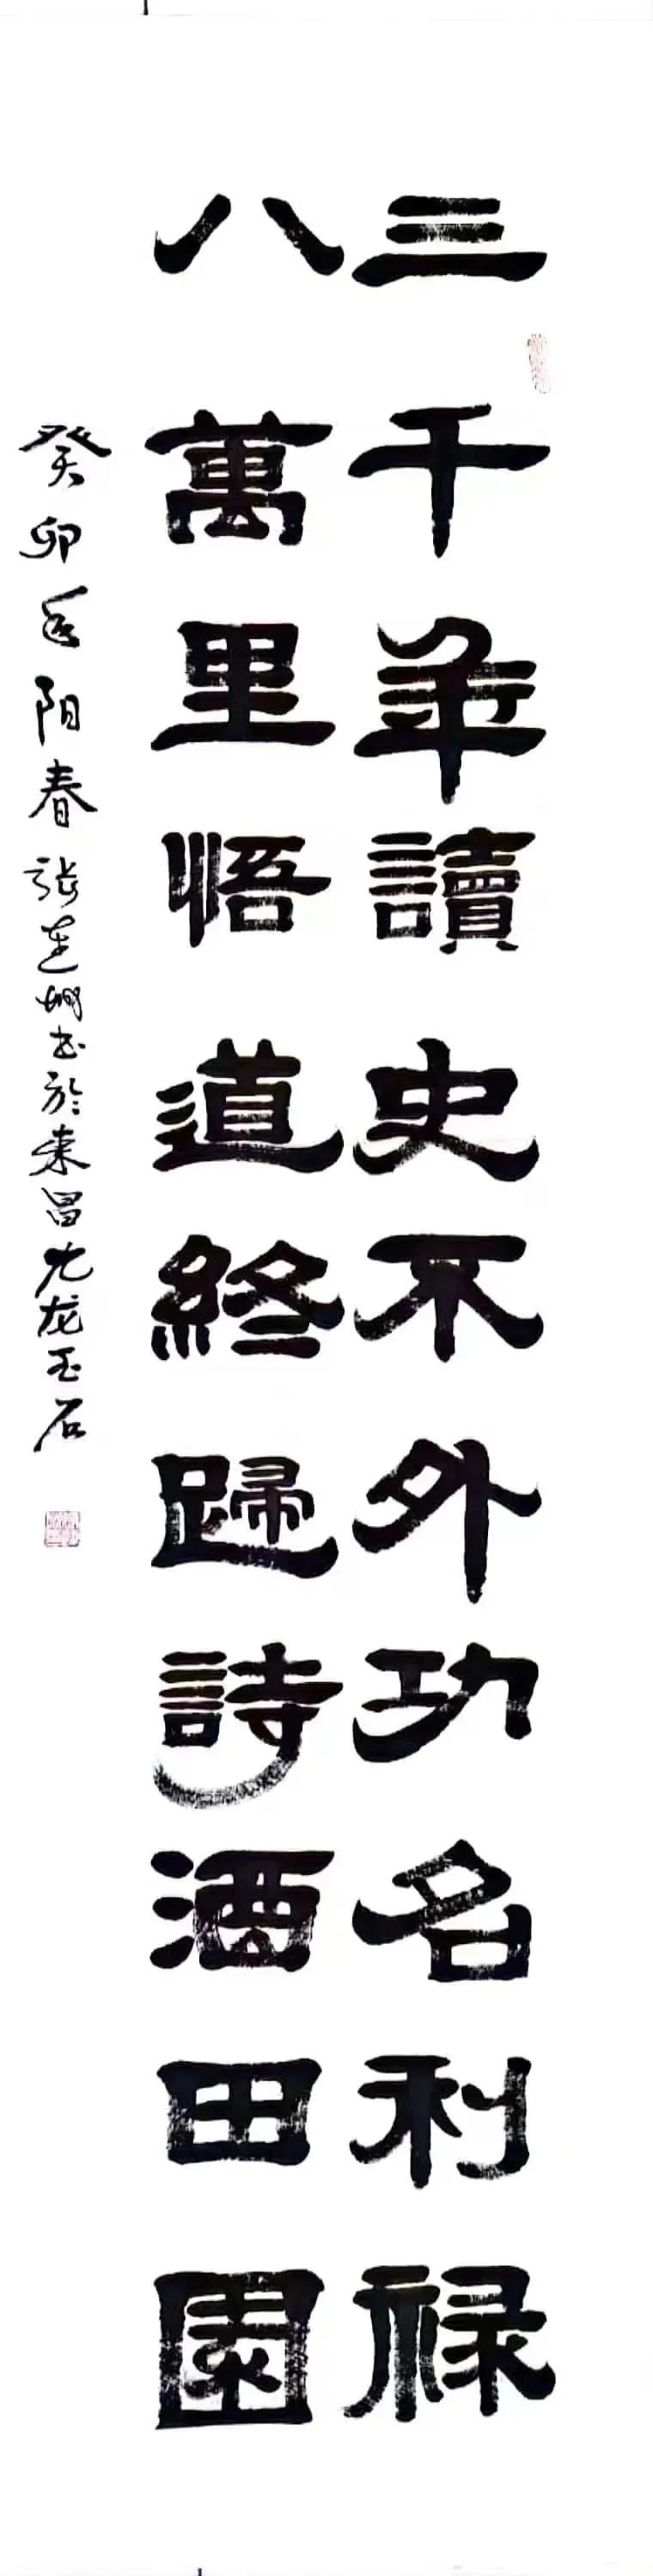 三千年讀史不外功名利禄
八萬里悟道終歸詩酒田園
癸卯年阳春張蓮娜书於東昌九龙玉石